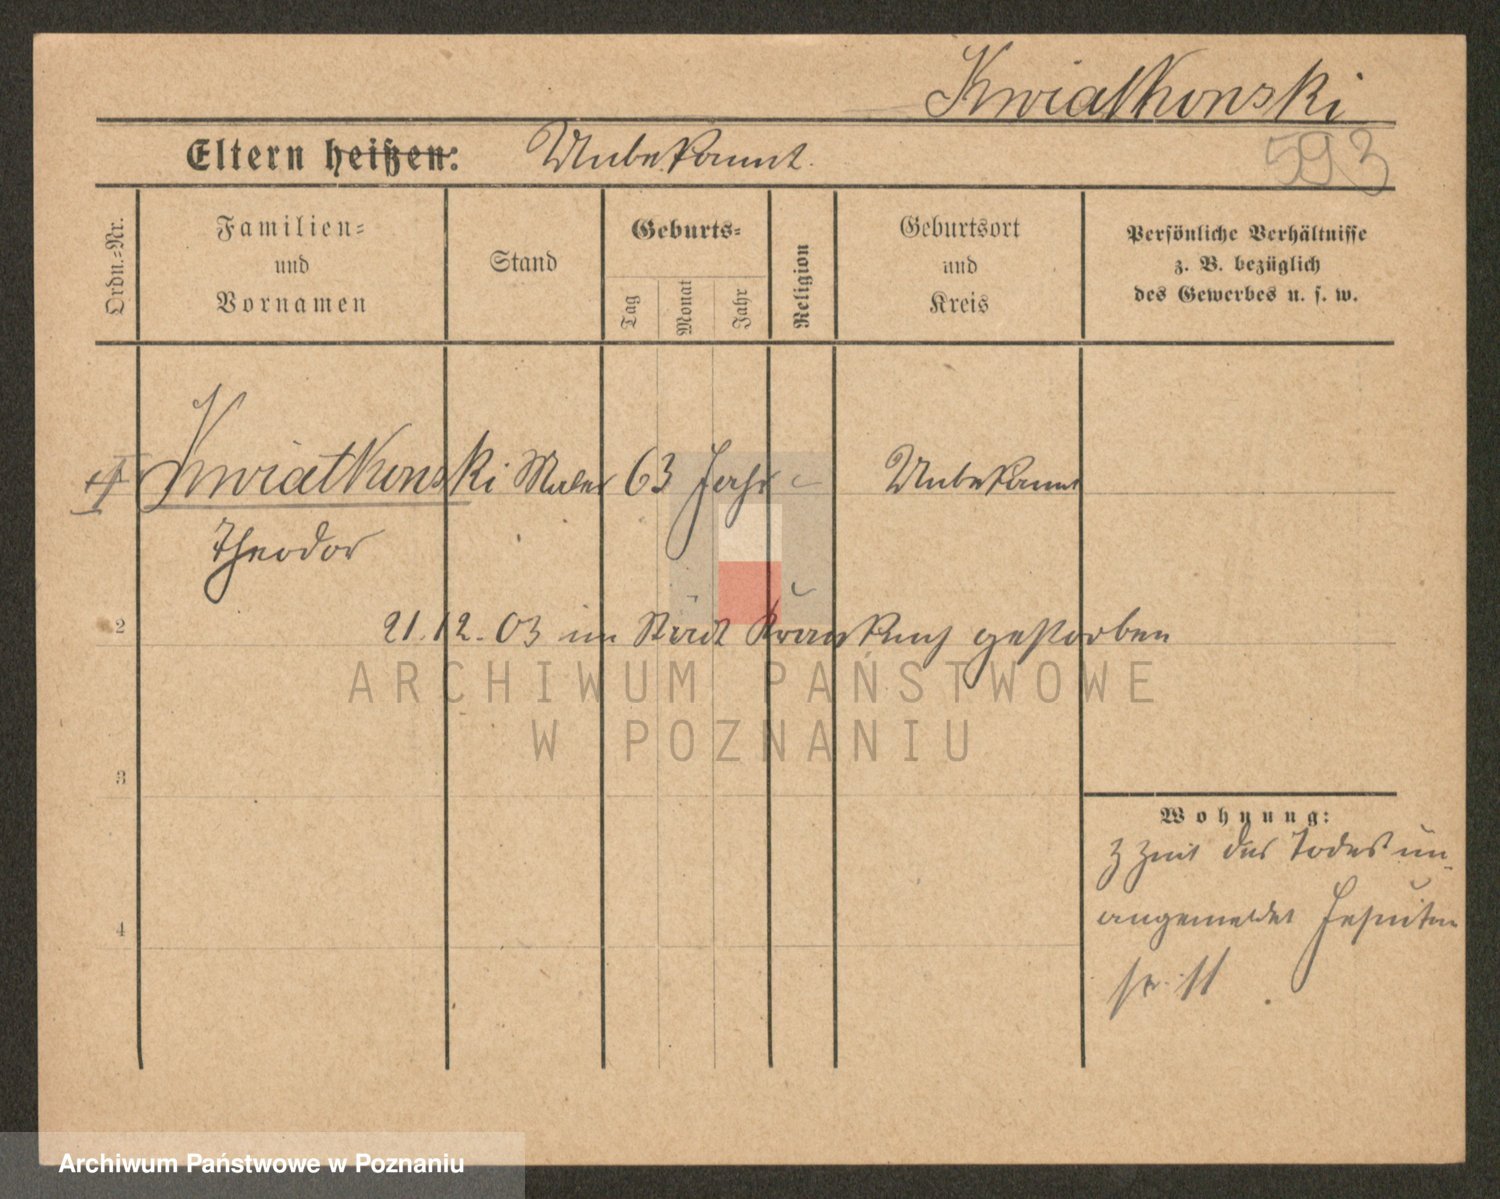 Kwiatkowski
593
Eltern heißen: Unbekannt.
Ordn.-Nr.
Familien-
und
Vornamen
Stand
Geburts-
Tag
Monat
Jahr
Religion
Geburtsort
und
Kreis
Persönliche Verhältnisse
z. B. bezüglich
des Gewerbes u. s. w.
Kwiatkowski Maler 63 Jahr Unbekannt
Theodor
2
21.12.03 im Städt gestorben
ARCHIWUM PAŃSTWOWE
W POZNANIU
3
Wohnung:
z Zeit des Todes un-
angemeldet Jesuiten
str. 11
4
Archiwum Państwowe w Poznaniu